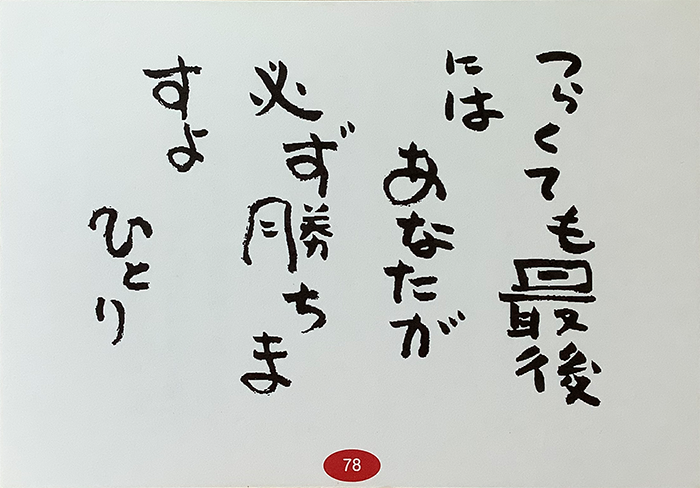 つらくても最後
には
あなたが
必ず勝ちま
すよ
ひとり
78